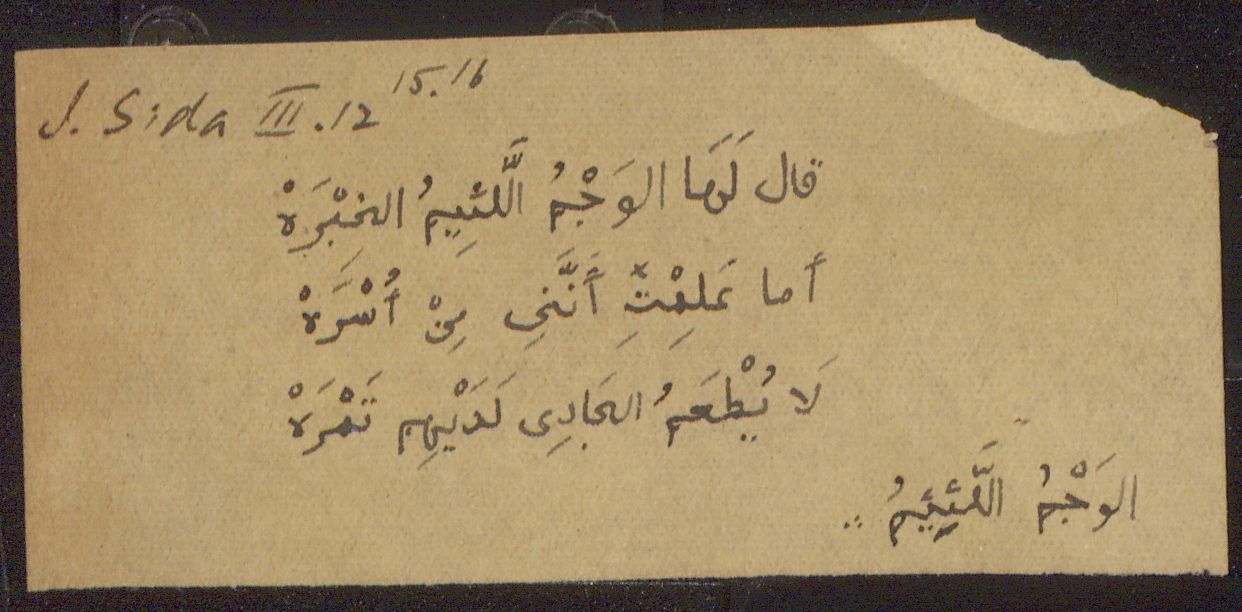 J. Sida III.12 15.16
قال لَهَا الوَجْمُ اللَّئِيمُ الخِبْرَهْ
أَما عَلِمْتِ أَنَّنِى مِنْ أُسْرَهْ
لَا يُطْعَمُ الجَادِى لَدَيْهِم تَمْرَهْ
الوَجْمُ اللَّئِيمُ ..